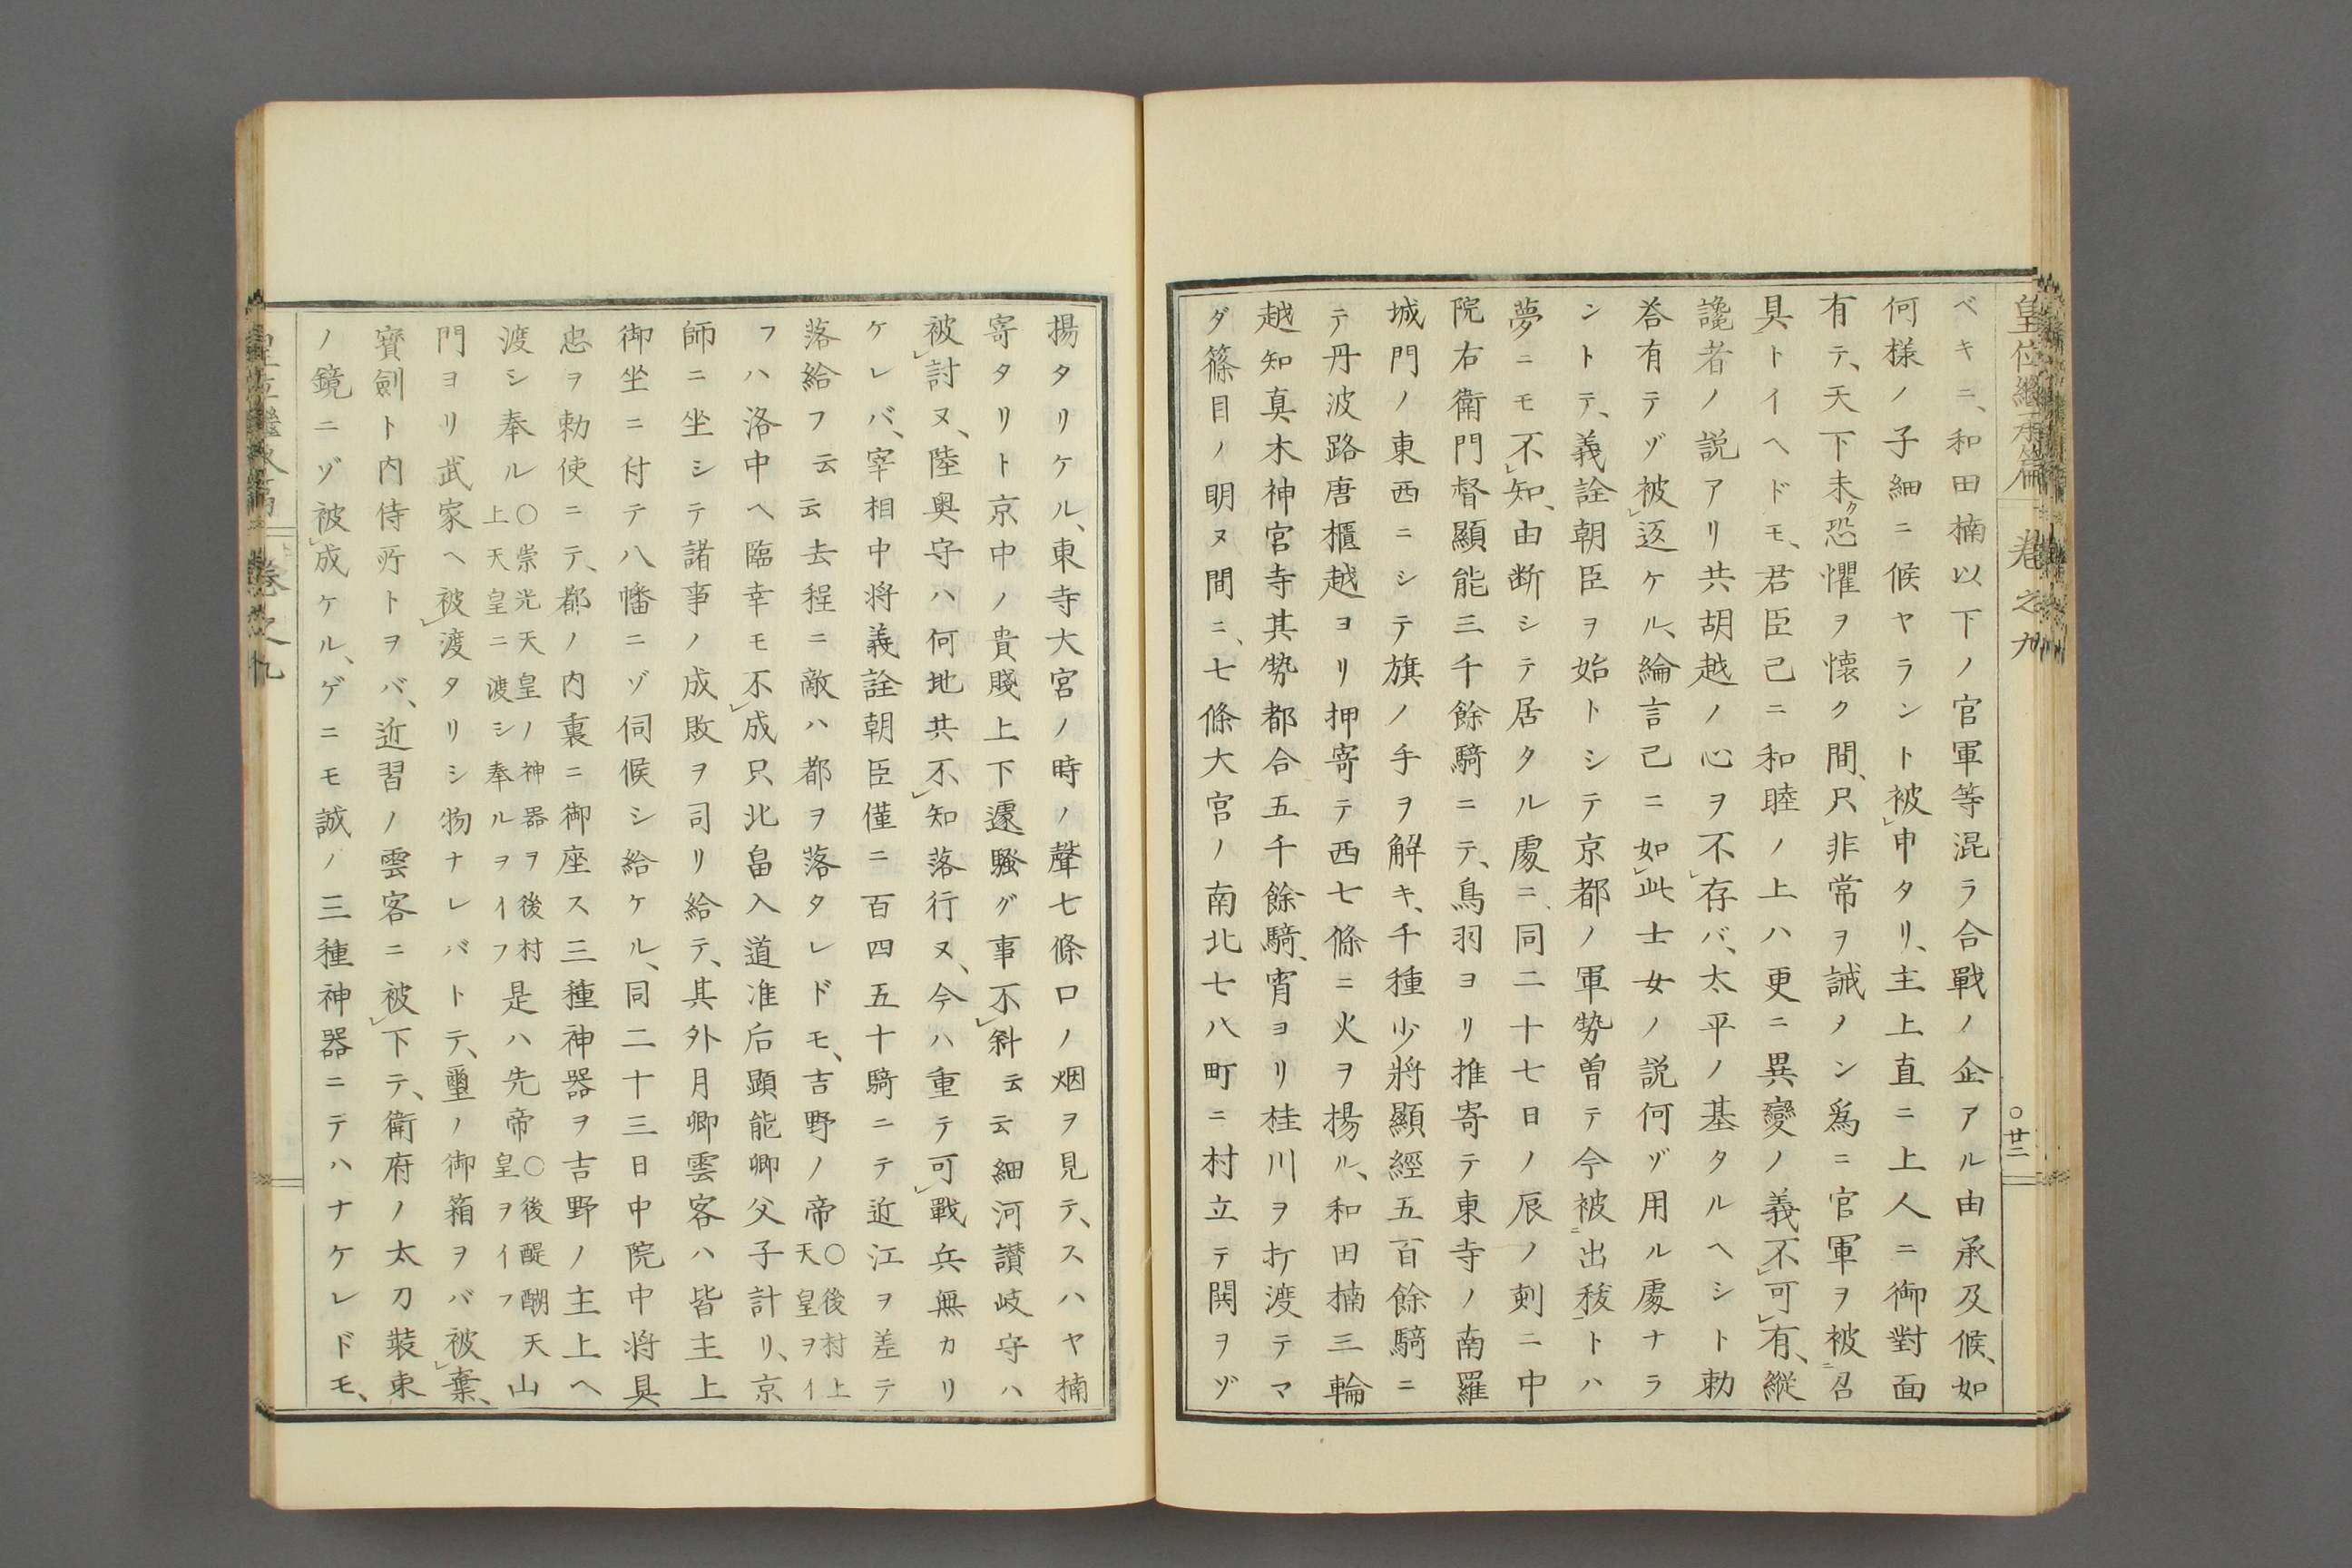 皇位繼承篇 卷之九 ○廿三
ベキニ、和田楠以下ノ官軍等混ラ合戰ノ企アル由承及候、如
何樣ノ子細ニ候ヤラント被レ申タリ、主上直ニ上人ニ御對面
有テ、天下未ク恐懼ヲ懷ク間、只非常ヲ誡メン爲ニ官軍ヲ被ニ召
具トイヘドモ、君臣已ニ和睦ノ上ハ更ニ異變ノ義不レ可レ有、縱
讒者ノ説アリ共胡越ノ心ヲ不レ存バ、太平ノ基タルヘシト勅
答有テゾ被レ返ケル、綸言已ニ如レ此士女ノ説何ゾ用ル處ナラ
ントテ、義詮朝臣ヲ始トシテ京都ノ軍勢曽テ今被ニ出秡一トハ
夢ニモ不レ知、由断シテ居タル處ニ、同二十七日ノ辰ノ刻ニ中
院右衛門督顯能三千餘騎ニテ、鳥羽ヨリ推寄テ東寺ノ南羅
城門ノ東西ニシテ旗ノ手ヲ解キ、千種少將顯經五百餘騎ニ
テ丹波路唐櫃越ヨリ押寄テ西七條ニ火ヲ揚ル、和田楠三輪
越知真木神宮寺其勢都合五千餘騎、宵ヨリ桂川ヲ打渡テマ
ダ篠目ノ明ヌ間ニ、七條大宮ノ南北七八町ニ村立テ鬨ヲゾ
揚タリケル、東寺大宮ノ時ノ聲七條口ノ烟ヲ見テ、スハヤ楠
寄タリト京中ノ貴賤上下遽騷グ事不レ斜云云細河讃岐守ハ
被レ討ヌ、陸奧守ハ何地共不レ知落行ヌ、今ハ重テ可レ戰兵無カリ
ケレバ、宰相中将義詮朝臣僅ニ百四五十騎ニテ近江ヲ差テ
落給フ云云去程ニ敵ハ都ヲ落タレドモ、吉野ノ帝○後村上天皇ヲイ
フハ洛中ヘ臨幸モ不レ成只北畠入道准后顕能卿父子計リ、京
師ニ坐シテ諸事ノ成敗ヲ司リ給テ、其外月卿雲客ハ皆主上
御坐ニ付テ八幡ニゾ伺候シ給ケル、同二十三日中院中将具
忠ヲ勅使ニテ、都ノ内裏ニ御座ス三種神器ヲ吉野ノ主上ヘ
渡シ奉ル○崇光天皇ノ神器ヲ後村上天皇ニ渡シ奉ルヲイフ是ハ先帝○後醍醐天皇ヲイフ山
門ヨリ武家ヘ被レ渡タリシ物ナレバトテ、璽ノ御箱ヲバ被レ棄、
寳劍ト内侍所トヲバ、近習ノ雲客ニ被レ下テ、衛府ノ太刀裝束
ノ鏡ニゾ被レ成ケル、ゲニモ誠ノ三種神器ニテハナケレドモ、
皇位繼承篇 卷之九